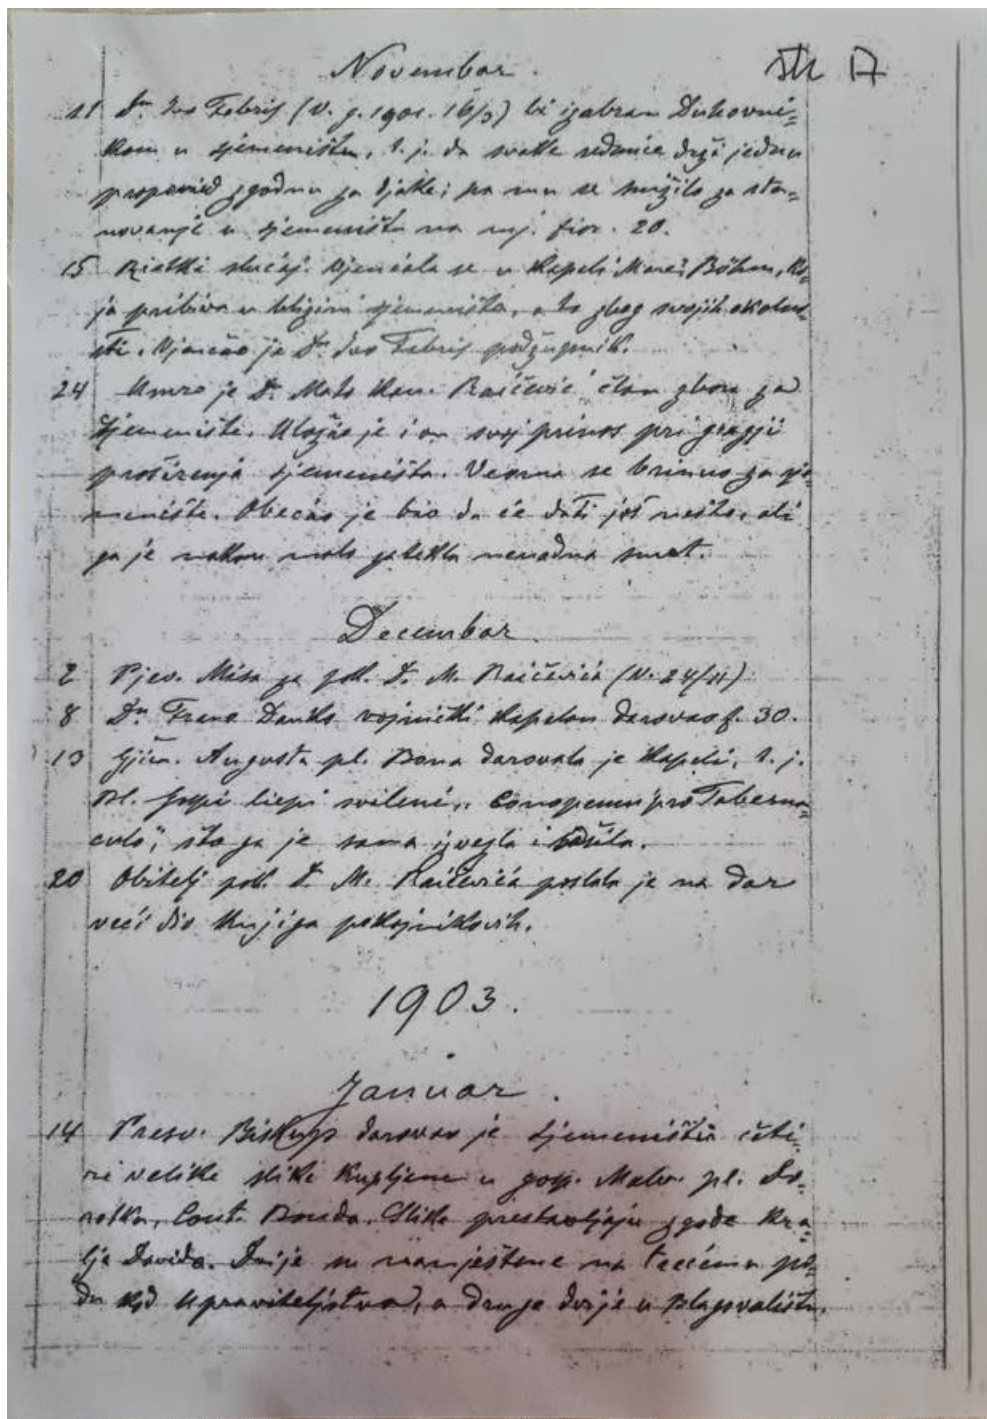 Novembar.
str 17
11 Dn Ivo Fabris (V. g. 1901. 16/3) bi izabran Duhovni=
kom u sjemeništu, t. j. da svake sedmice drži jednu
propovied zgodnu za djake; pa mu se snizilo za sta=
novanje u sjemeništu na mj. fior. 20.
15 Rietki slučaj. Vjenčala se u kapeli Mare Böhm, ko=
ja pribiva u blizini sjemeništa, a to zbog svojih okolno=
sti. Vjenčao je D. Ivo Fabris podžupnik.
24 Umro je D. Mato Kan. Raičević član zbora za
Sjemenište. Uložio je i on svoj prinos pri gragji
proširenja sjemeništa. Veoma se brinuo za sje=
menište. Obećao je bio da će dati još nešto, ali
ga je nakon malo zatekla nenadna smrt.
Decembar.
2 Pjev. Misa za pok. D. M. Raičevića (V. 24/11)
8 Dn Frano Danko vojnički kapelan darovao f. 30.
13 Gjica. Augusta pl. Bona darovala je kapeli, t. j.
Bl. Gospi liepi svileni „Conopeum pro Taberna=
culo", što ga je sama izvezla i sašila.
20 Obitelj pok. D. M. Raičevića poslala je na dar
veći dio knjiga pokojnikovih.
1903.
Januar.
14 Presv. Biskup darovao je Sjemeništu četi=
ri velike slike kupljene u gosp. Matv. pl. So=
ratka, Cont. Bonda. Slike prestavljaju zgode kra=
lja Davida. Dvije su namještene na trećemu po=
du kod upraviteljstva, a druge dvije u Blagovalištu.